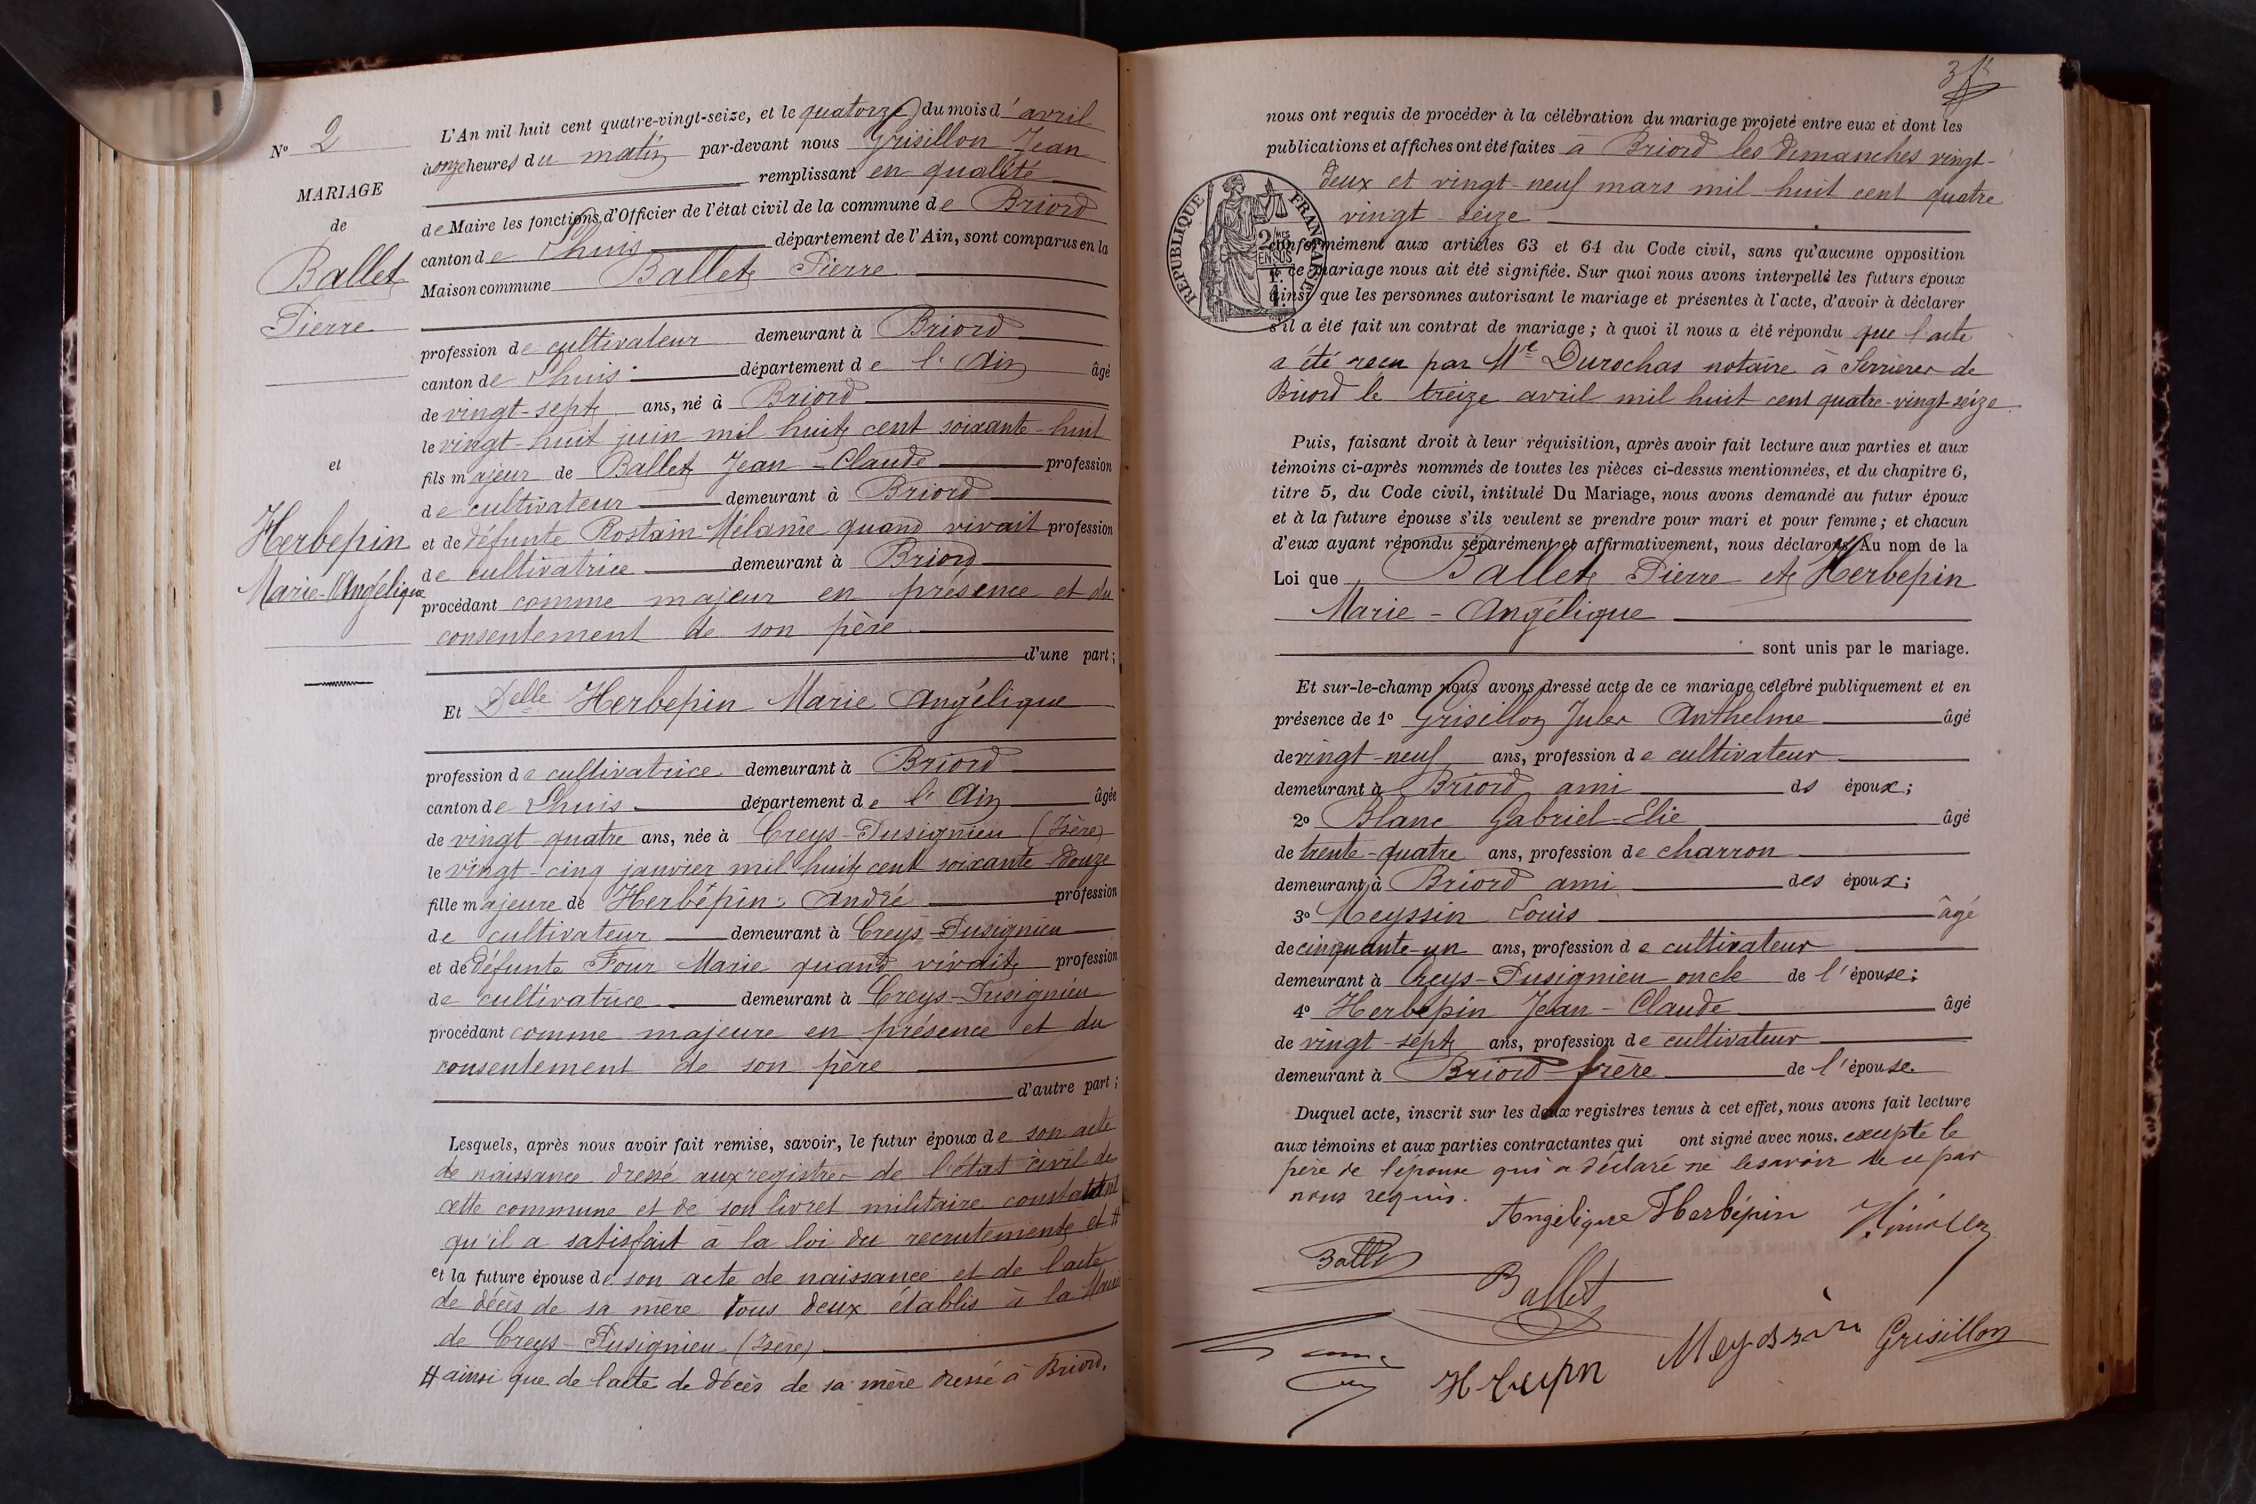 N° 2
MARIAGE
de
Ballet
Pierre
et
Herbepin
Marie-Angélique
L'An mil huit cent quatre-vingt-seize, et le quatorze du mois d'avril
à onze heures du matin par-devant nous Grisillon Jean
remplissant en qualité
de Maire les fonctions d'Officier de l'état civil de la commune de Briord
canton de Lhuis département de l'Ain, sont comparus en la
Maison commune Ballet Pierre
profession de cultivateur demeurant à Briord
canton de Lhuis département de l'Ain âgé
de vingt-sept ans, né à Briord
le vingt-huit juin mil huit cent soixante-huit
fils majeur de Ballet Jean-Claude profession
de cultivateur demeurant à Briord
et de défunte Rostain Mélanie quand vivait profession
de cultivatrice demeurant à Briord
procédant comme majeur en présence et du
consentement de son père
d'une part;
Et Delle Herbepin Marie Angélique
profession de cultivatrice demeurant à Briord
canton de Lhuis département de l'Ain âgée
de vingt quatre ans, née à Creys-Pusignieu (Isère)
le vingt-cinq janvier mil huit cent soixante-douze
fille majeure de Herbépin André profession
de cultivateur demeurant à Creys-Pusignieu
et de défunte Four Marie quand vivait profession
de cultivatrice demeurant à Creys-Pusignieu
procédant comme majeure en présence et du
consentement de son père
d'autre part;
Lesquels, après nous avoir fait remise, savoir, le futur époux de son acte
de naissance dressé aux registres de l'état civil de
cette commune et de son livret militaire constatant
qu'il a satisfait à la loi du recrutement et #
et la future épouse de son acte de naissance et de l'acte
de décès de sa mère tous deux établis à la Mairie
de Creys-Pusignieu (Isère)
# ainsi que de l'acte de décès de sa mère dressé à Briord.
nous ont requis de procéder à la célébration du mariage projeté entre eux et dont les
publications et affiches ont été faites à Briord les dimanches vingt-
deux et vingt-neuf mars mil huit cent quatre
vingt seize
RÉPUBLIQUE FRANÇAISE
conformément aux articles 63 et 64 du Code civil, sans qu'aucune opposition
à ce mariage nous ait été signifiée. Sur quoi nous avons interpellé les futurs époux
ainsi que les personnes autorisant le mariage et présentes à l'acte, d'avoir à déclarer
s'il a été fait un contrat de mariage; à quoi il nous a été répondu que l'acte
a été reçu par Me Durochas notaire à Serrières de
Briord le treize avril mil huit cent quatre-vingt seize
Puis, faisant droit à leur réquisition, après avoir fait lecture aux parties et aux
témoins ci-après nommés de toutes les pièces ci-dessus mentionnées, et du chapitre 6,
titre 5, du Code civil, intitulé Du Mariage, nous avons demandé au futur époux
et à la future épouse s'ils veulent se prendre pour mari et pour femme; et chacun
d'eux ayant répondu séparément et affirmativement, nous déclarons Au nom de la
Loi que Ballet Pierre et Herbepin
Marie-Angélique
sont unis par le mariage.
Et sur-le-champ nous avons dressé acte de ce mariage célébré publiquement et en
présence de 1° Grisillon Jules Anthelme âgé
de vingt-neuf ans, profession de cultivateur
demeurant à Briord ami ds époux;
2° Blanc Gabriel-Elie âgé
de trente-quatre ans, profession de charron
demeurant à Briord ami des époux;
3° Meyssin Louis âgé
de cinquante-un ans, profession de cultivateur
demeurant à Creys-Pusignieu oncle de l'épouse;
4° Herbepin Jean-Claude âgé
de vingt-sept ans, profession de cultivateur
demeurant à Briord frère de l'épouse
Duquel acte, inscrit sur les deux registres tenus à cet effet, nous avons fait lecture
aux témoins et aux parties contractantes qui ont signé avec nous. excepté le
père de l'épouse qui a déclaré ne le savoir de ce par
nous requis.
Angelique Herbépin
Ballet
Ballet
Meyssin Grisillon